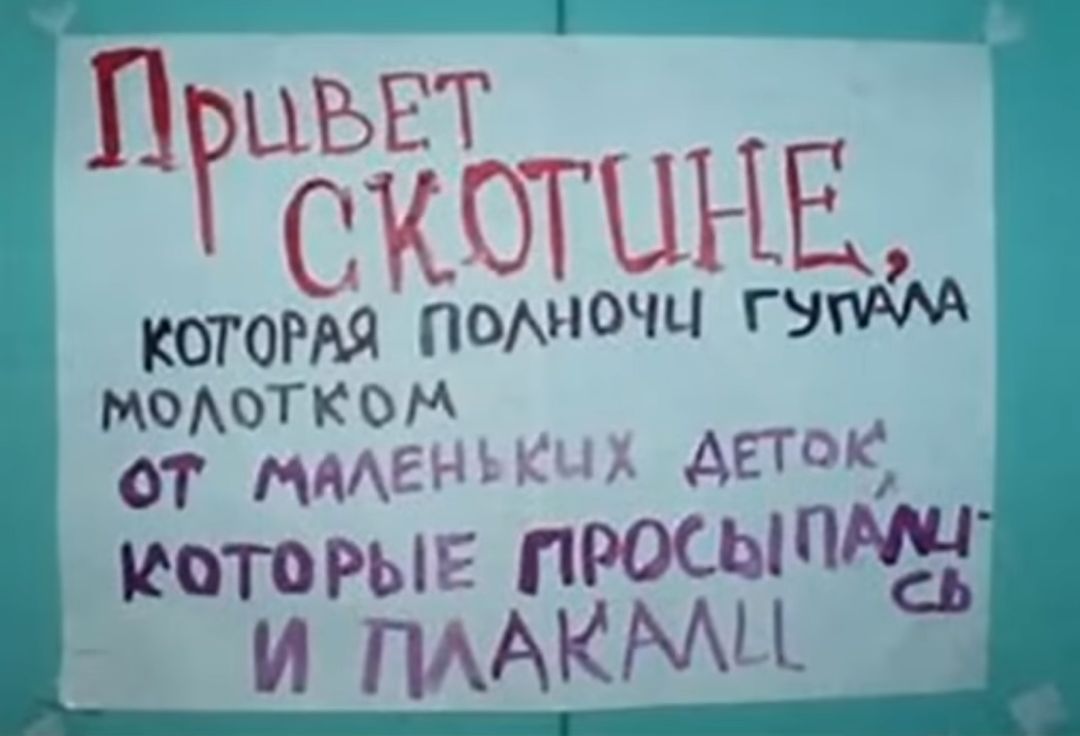 Привет
СКОТИНЕ,
КОТОРАЯ ПОЛНОЧИ ГУПАЛА
МОЛОТКОМ
ОТ МАЛЕНЬКИХ ДЕТОК,
КОТОРЫЕ ПРОСЫПАЛИ-
СЬ
И ПЛАКАЛИ